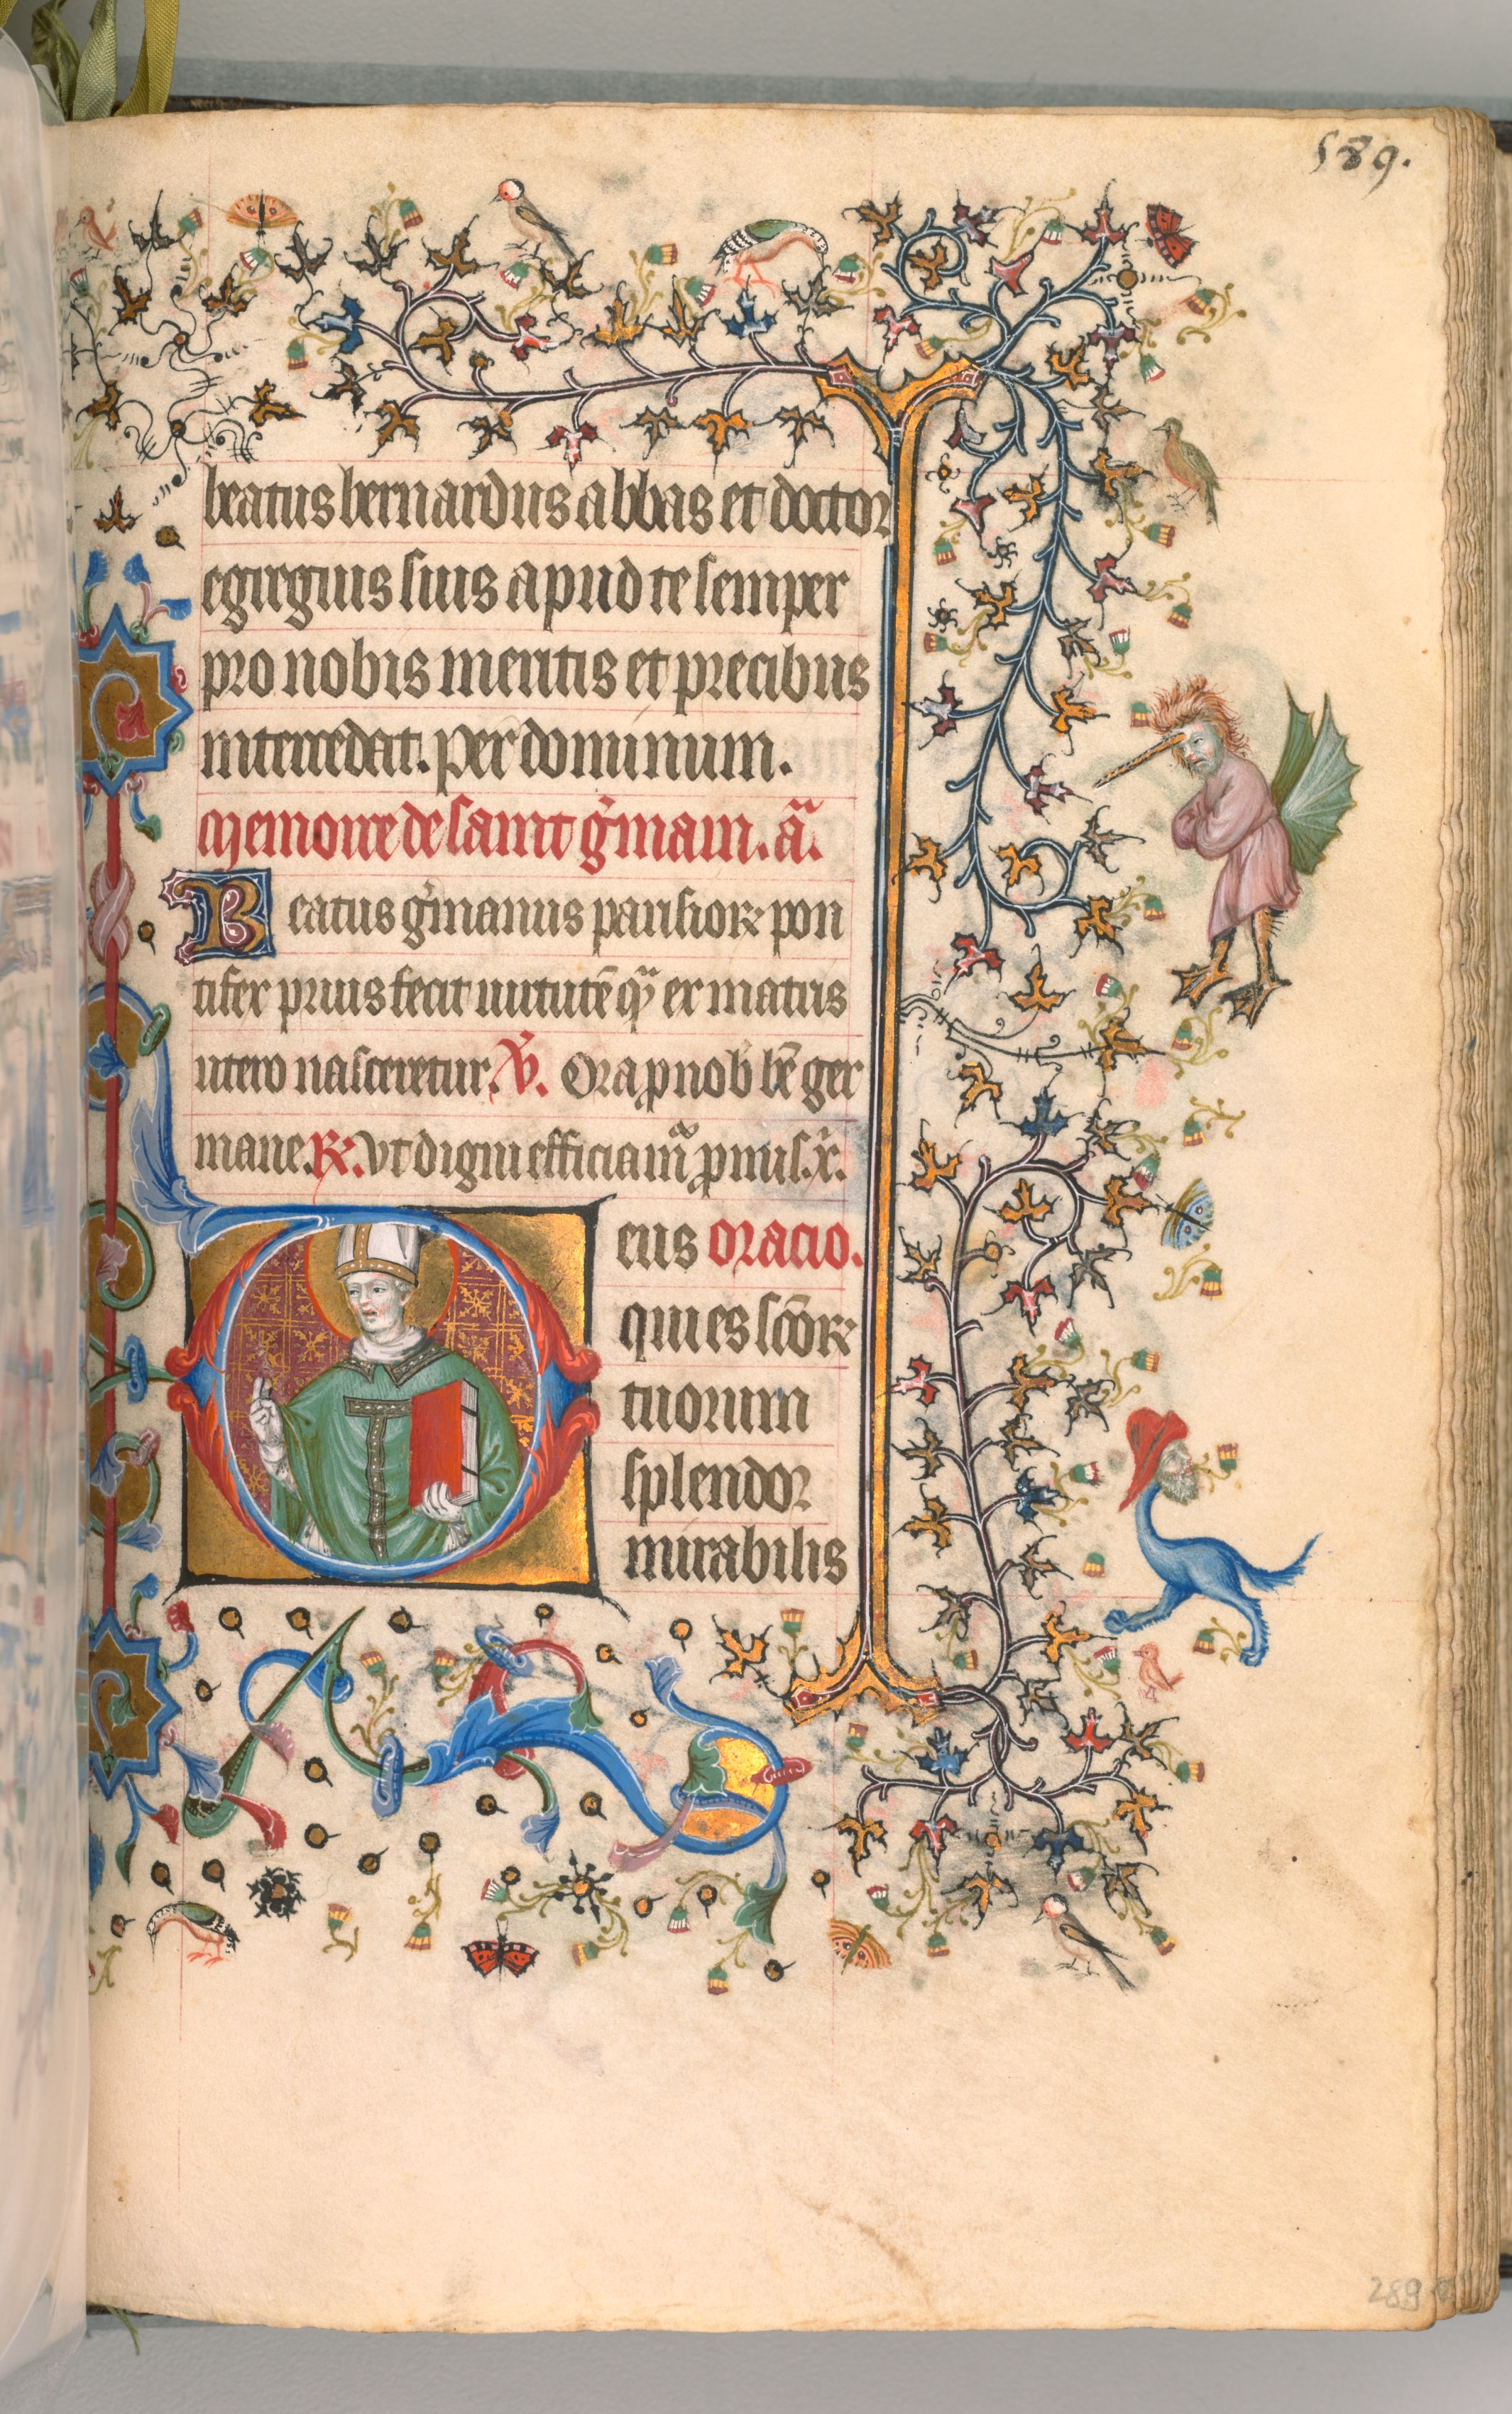 589.
beatus bernardus abbas et doctor
egregius suis apud te semper
pro nobis meritis et precibus
intercedat. per dominum.
Memoire de saint g̓main. añ.
Beatus g̓manus parisioꝝ pon
tifex prius fecit uirtutē qͣ ex matris
utero nasceretur. ℣. Ora p nob̓ bē ger
mane. ℟. Vt digni efficiam̃ p̱mis. x̓.
eus oracio.
qui es scōꝝ
tuorum
splendor
mirabilis
289